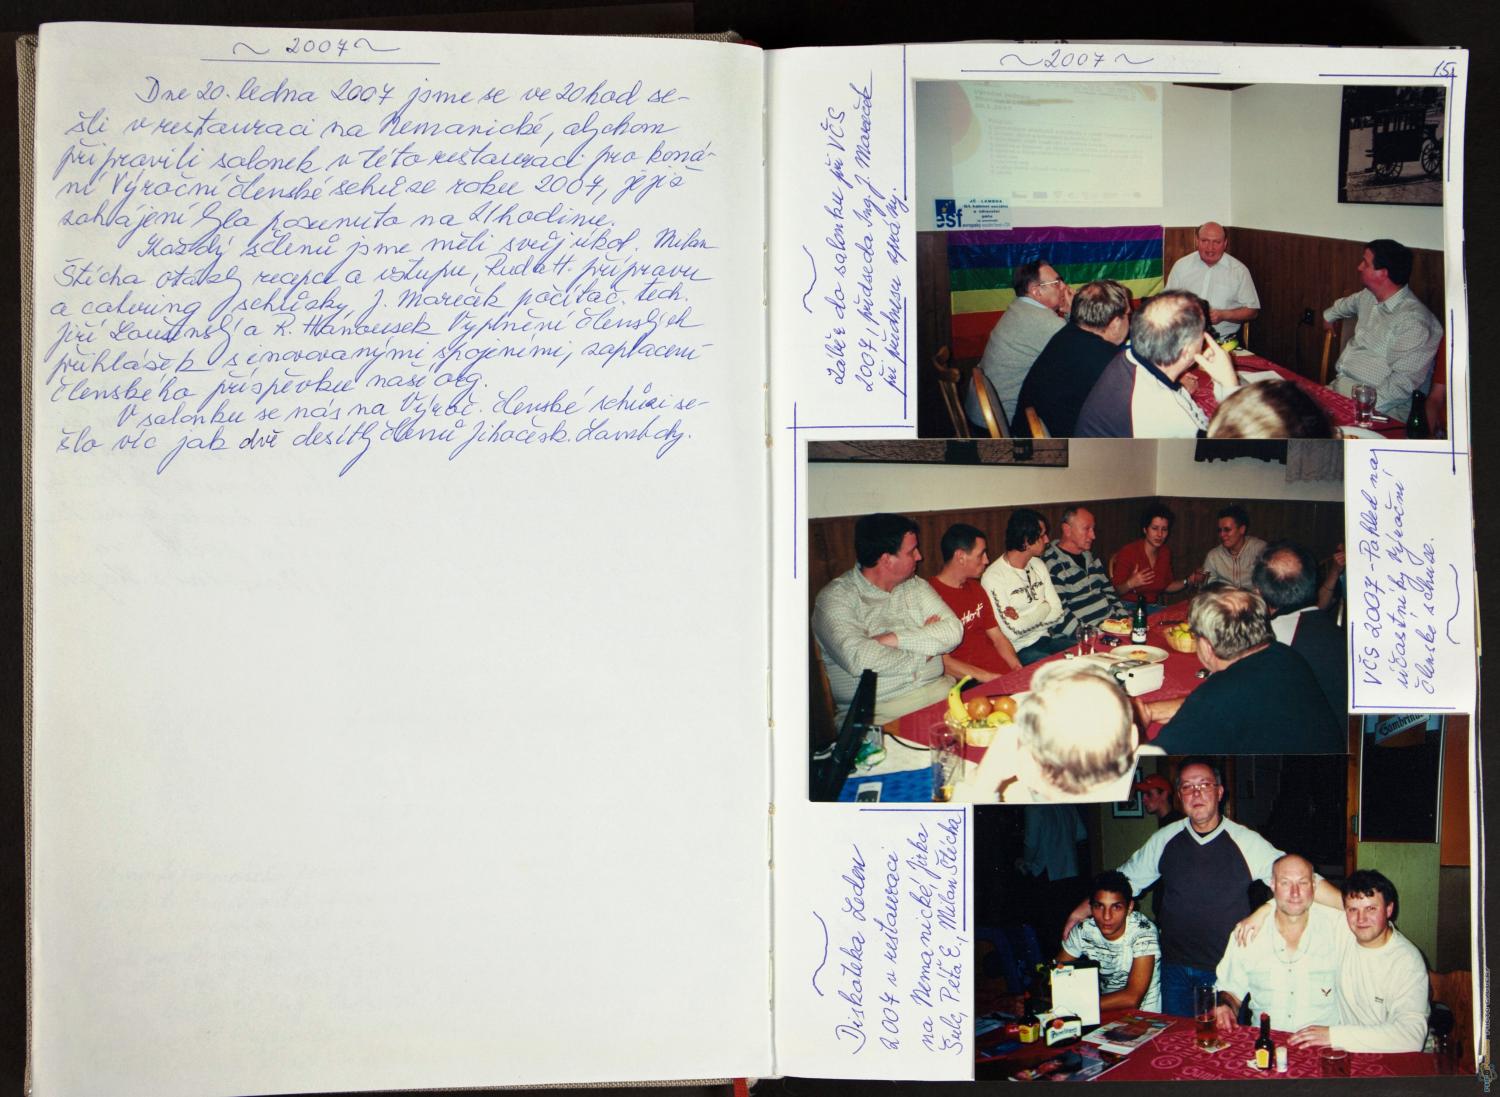 ~ 2007 ~
Dne 20. ledna 2007 jsme se ve 20 hod se-
šli v restauraci na Nemanické, abychom
připravili salonek v této restauraci pro koná-
ní Výroční členské schůze roku 2007, jejíž
zahájení bylo posunuto na 21 hodinu.
Každý z členů jsme měli svůj úkol. Milan
Štícha otázky recepce a vstupu, Ruda H. přípravu
a catering schůzky, J. Mareček počítač. tech.
Jiří a R. Hanousek Vyplnění členských
přihlášek s inovovanými spojeními, zaplacení
členského příspěvku naší org.
V salonku se nás na Výroč. členské schůzi se-
šlo víc jak dvě desítky členů Jihočesk. Lambdy.
~ 2007 ~
15
Záběr do salonku při VČS
2007, předseda Ing. J. Mareček
při přednesu zprávy.
JČ - LAMBDA
esf
VČS 2007 - Pohled na
účastníky Výroční
členské schůze.
Diskotéka Leden
2007 v restauraci
na Nemanické, Jirka
Šulc, Péťa E., Milan Štícha
Gambrinus